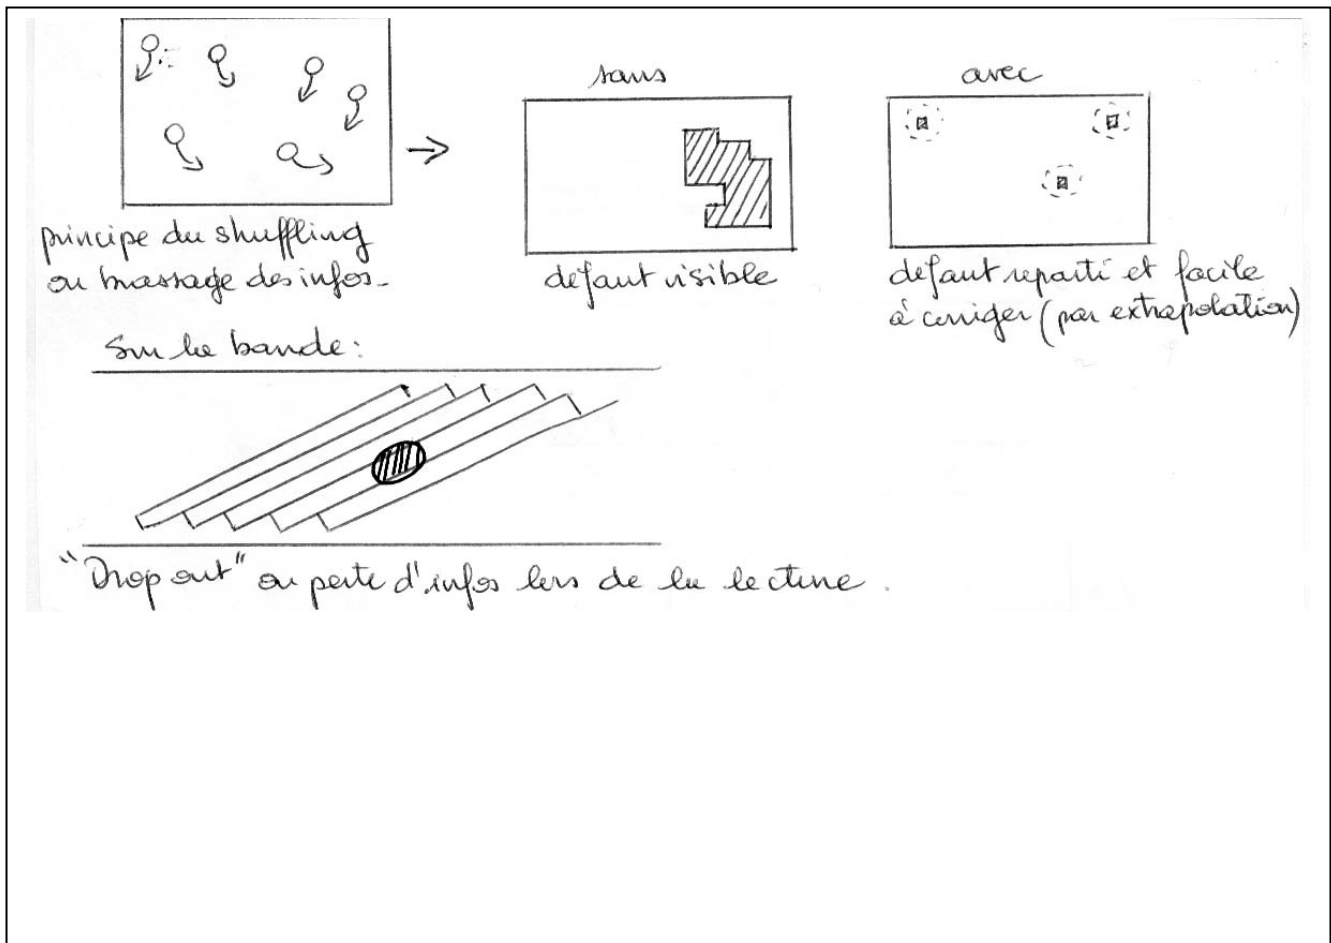 sans
avec
principe du shuffling
ou brassage des infos.
défaut visible
défaut reparti et facile
à corriger (par extrapolation)
Sur la bande:
"Drop out" ou perte d'infos lors de la lecture.